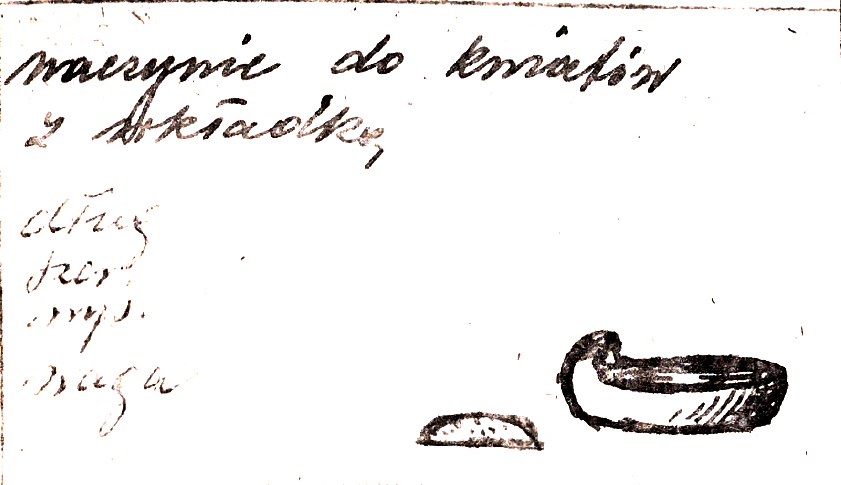 naczynie do kwiatów
z wkładką
dług
szer.
wys.
waga